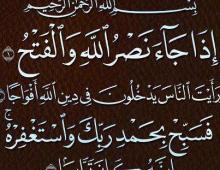 بِسْمِ اللَّهِ الرَّحْمَنِ الرَّحِيمِ
إِذَا جَاءَ نَصْرُ اللَّهِ وَالْفَتْحُ ١
رَأَيْتَ النَّاسَ يَدْخُلُونَ فِي دِينِ اللَّهِ أَفْوَاجًا ٢
فَسَبِّحْ بِحَمْدِ رَبِّكَ وَاسْتَغْفِرْهُ
إِنَّهُ كَانَ تَوَّابًا